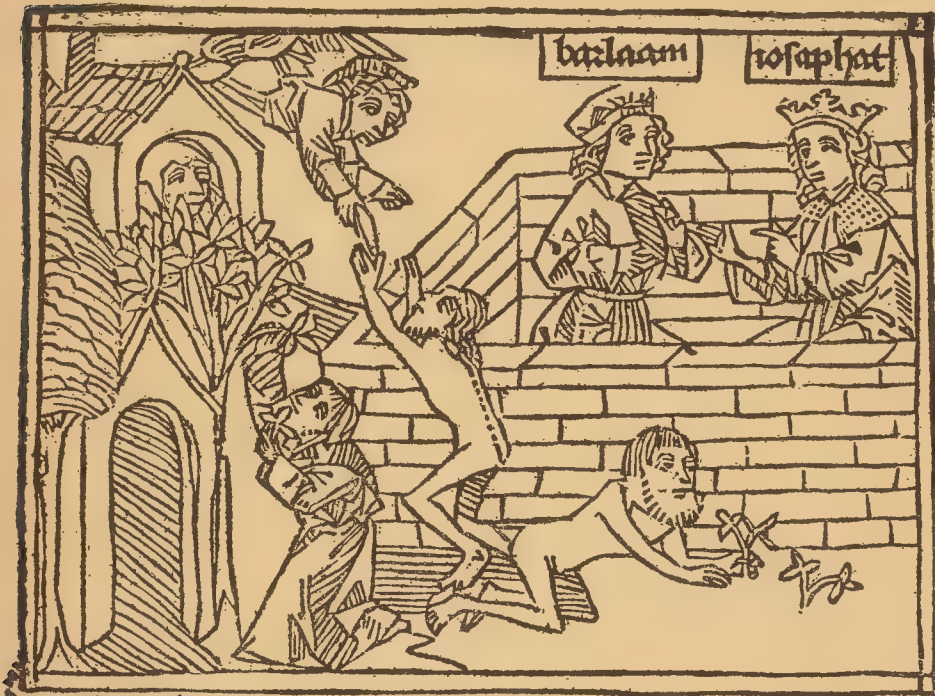 barlaam
iosaphat